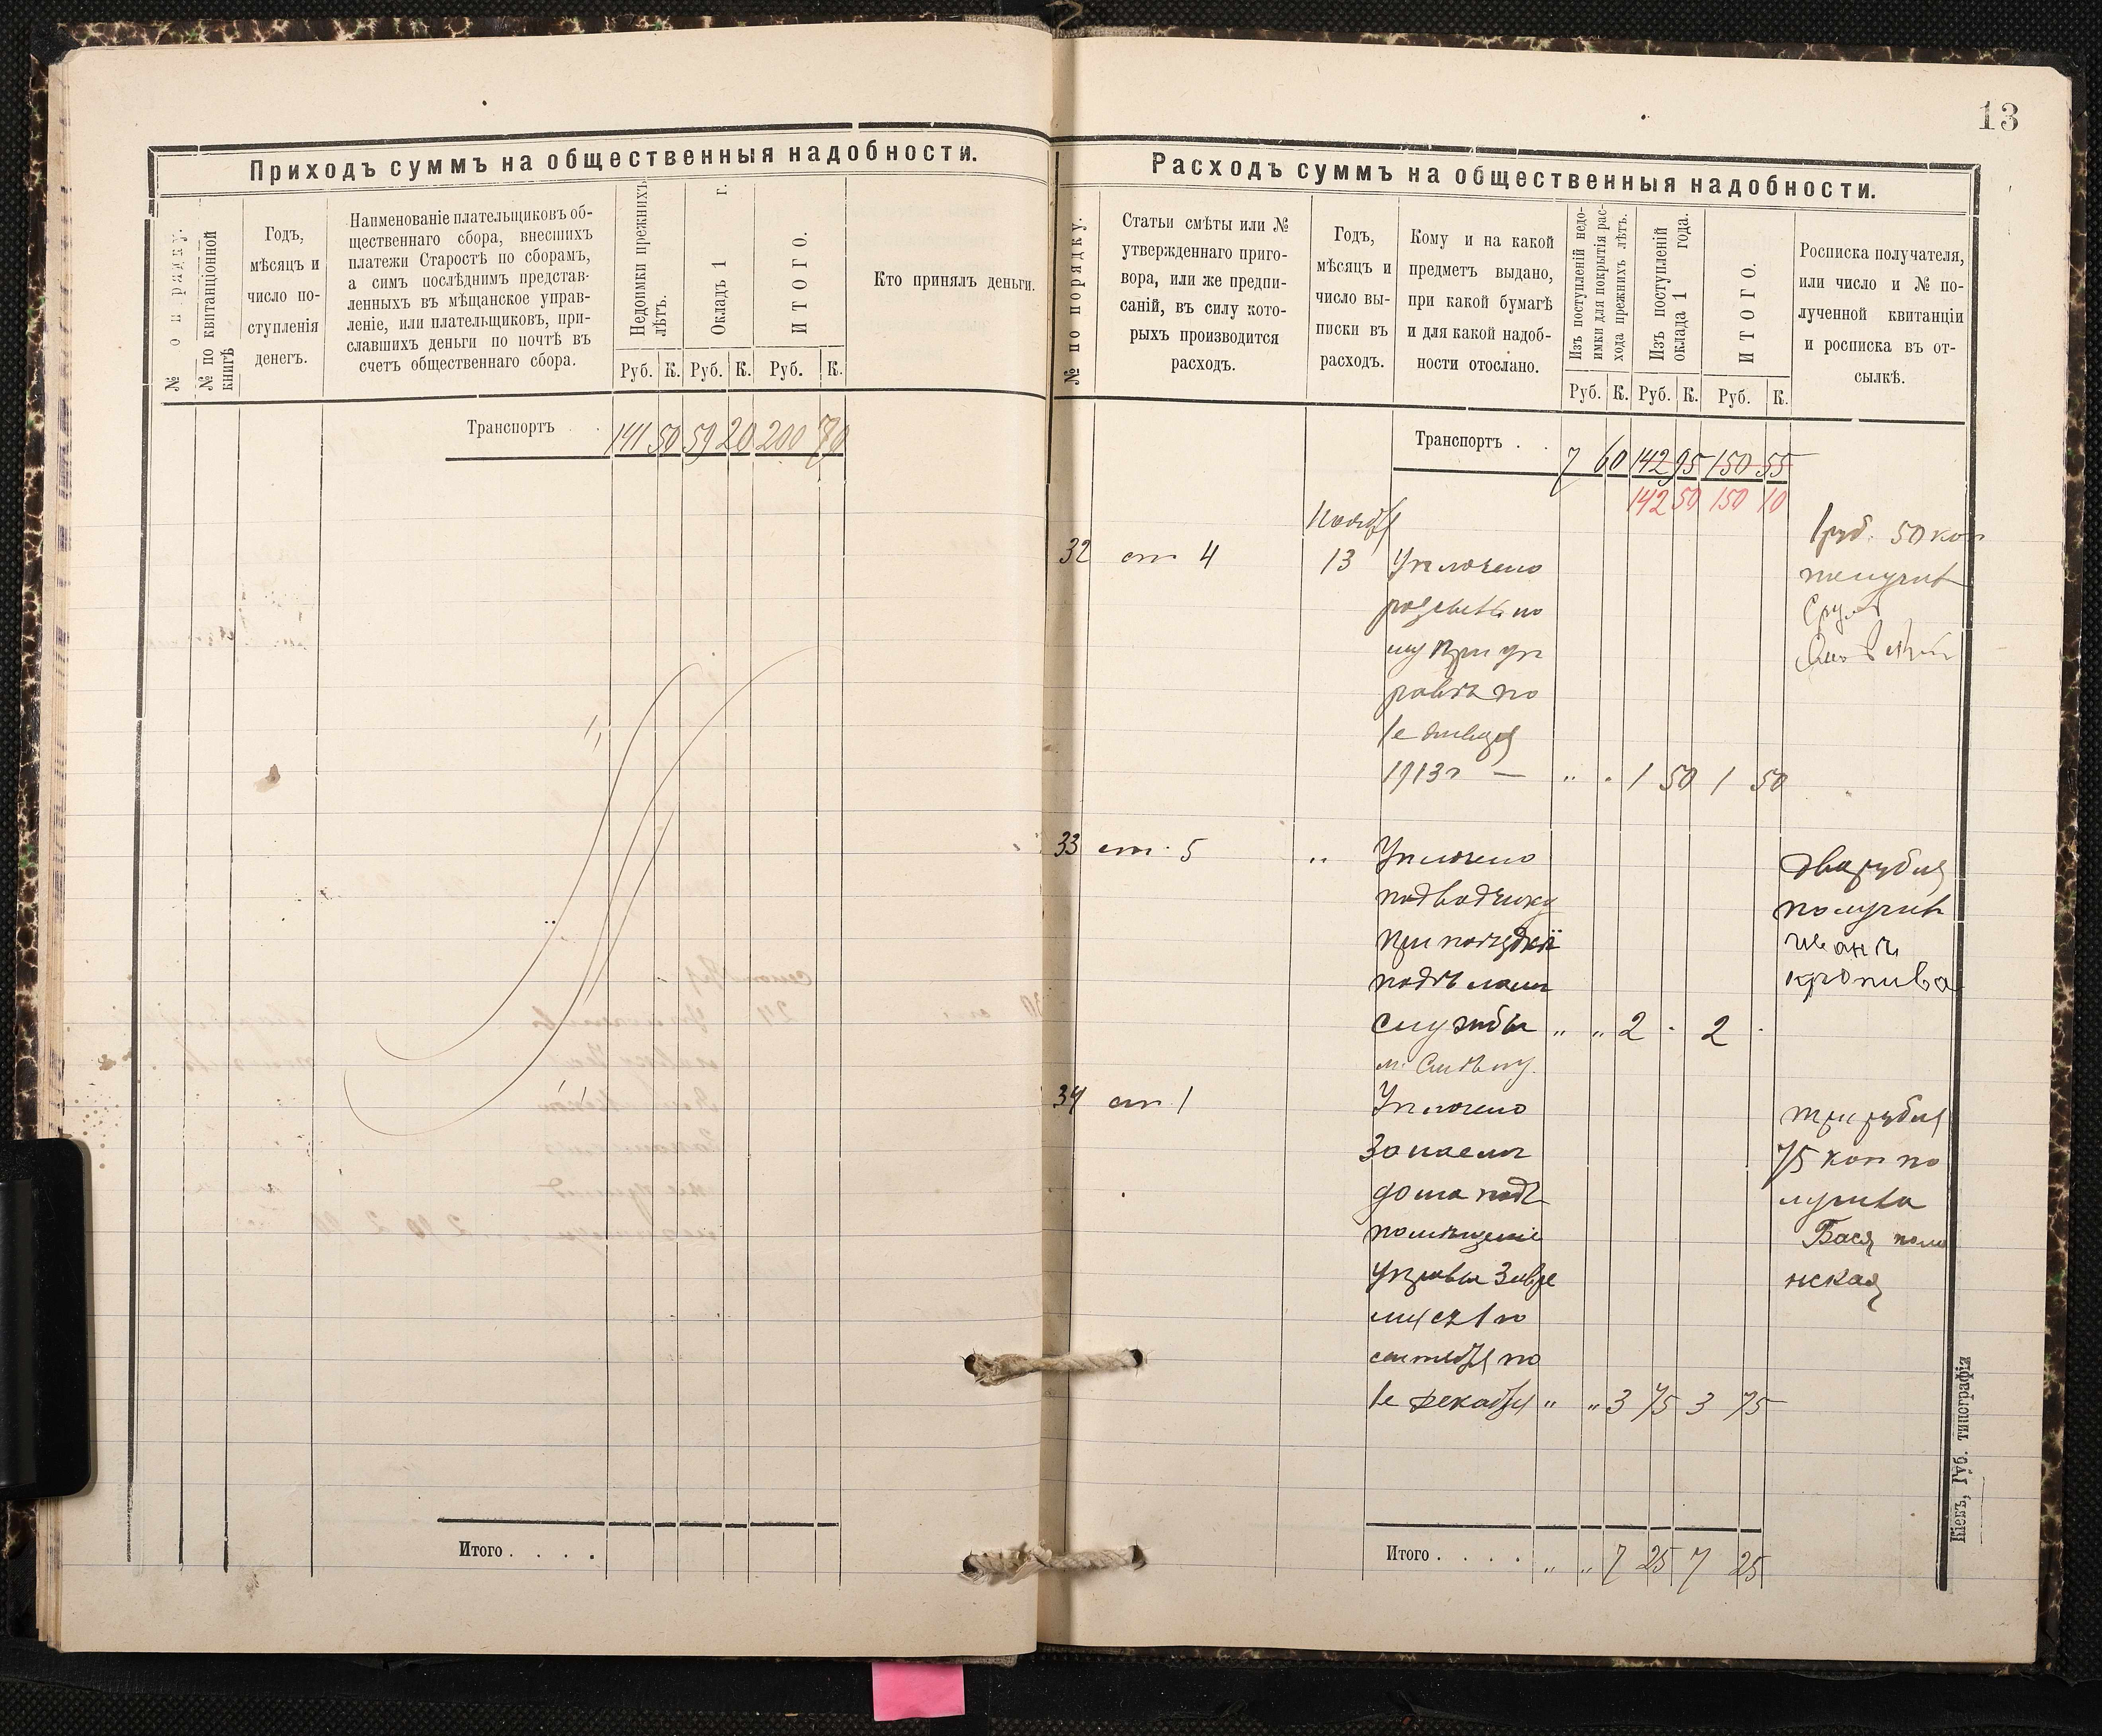 13
Приходъ суммъ на общественныя надобности.
№ по порядку.
№ по квитанціонной
книгѣ
Годъ,
мѣсяцъ и
число по-
ступленія
денегъ.
Наименованіе плательщиковъ об-
щественнаго сбора, внесшихъ
платежи Старостѣ по сборамъ,
а симъ послѣднимъ представ-
ленныхъ въ мѣщанское управ-
леніе, или плательщиковъ, при-
славшихъ деньги по почтѣ въ
счетъ общественнаго сбора.
Недоимки прежнихъ
лѣтъ.
Окладъ 1 г.
ИТОГО.
Руб. К. Руб. К. Руб. К.
Кто принялъ деньги.
Транспортъ . . 141 50 59 20 200 70
Итого . . . .
Расходъ суммъ на общественныя надобности.
№ по порядку.
Статьи смѣты или №
утвержденнаго приго-
вора, или же предпи-
саній, въ силу кото-
рыхъ производится
расходъ.
Годъ,
мѣсяцъ и
число вы-
писки въ
расходъ.
Кому и на какой
предметъ выдано,
при какой бумагѣ
и для какой надоб-
ности отослано.
Изъ поступленій недо-
имки для покрытія рас-
хода прежнихъ лѣтъ.
Изъ поступленій
оклада 1 года.
ИТОГО.
Руб. К. Руб. К. Руб. К.
Росписка получателя,
или число и № по-
лученной квитанціи
и росписка въ от-
сылкѣ.
Транспортъ . . 7 60 142 95 150 55
142 50 150 10
Ноября
32 ст 4 13 Уплочено
по
при уп
равѣ по
1е января
1913г — „ „ 1 50 1 50
1 руб. 50 коп
получив
33 ст. 5 „ Уплочено
подводчику
при поездки
по дѣлам
службы „ „ 2 . 2 .
два рубля
получив
иванъ
кропива
34 ст 1 Уплочено
за наем
дома подъ
помещеніе
Управы за вре
мя съ 1 по
сентября по
1е декабря „ „ 3 75 3 75
три рубля
75 коп по
лучила
Бася поло
нская
Итого . . . . „ „ 7 25 7 25
Кіевъ, Губ. типографія